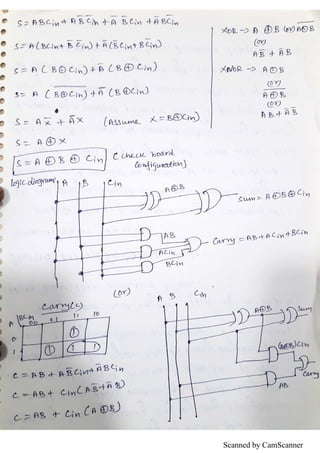 S = ABCin + A B̅ C̅in + A̅ B̅Cin + A̅BC̅in
S = A(BCin + B̅ C̅in) + A̅ (B̅Cin + BC̅in)
S = A ( B⊙Cin) + A̅ (B⊕Cin)
S = A (B⊕Cin)̅ + A̅ (B⊕Cin)
S = A x̅ + A̅ x (Assume x = B⊕Cin)
S = A ⊕ x
S = A ⊕ B ⊕ Cin ( check board configuration)
XOR -> A ⊕ B (or)
(or)
AB̅ + A̅B
XNOR -> A⊙B
(or)
A⊕B
(or)
AB + A̅B̅
Logic diagram:
A B Cin
A⊕B
Sum = A⊕B⊕Cin
AB
ACin
BCin
Carry = AB + ACin + BCin
(or)
Carry(c)
A BCin
00 01 11 10
0 1
1 1 1 1
C = AB + AB̅Cin + A̅BCin
C = AB + Cin(AB̅ + A̅B)
C = AB + Cin (A⊕B)
A B Cin
A⊕B
Sum
(A⊕B)Cin
Carry
AB
Scanned by CamScanner